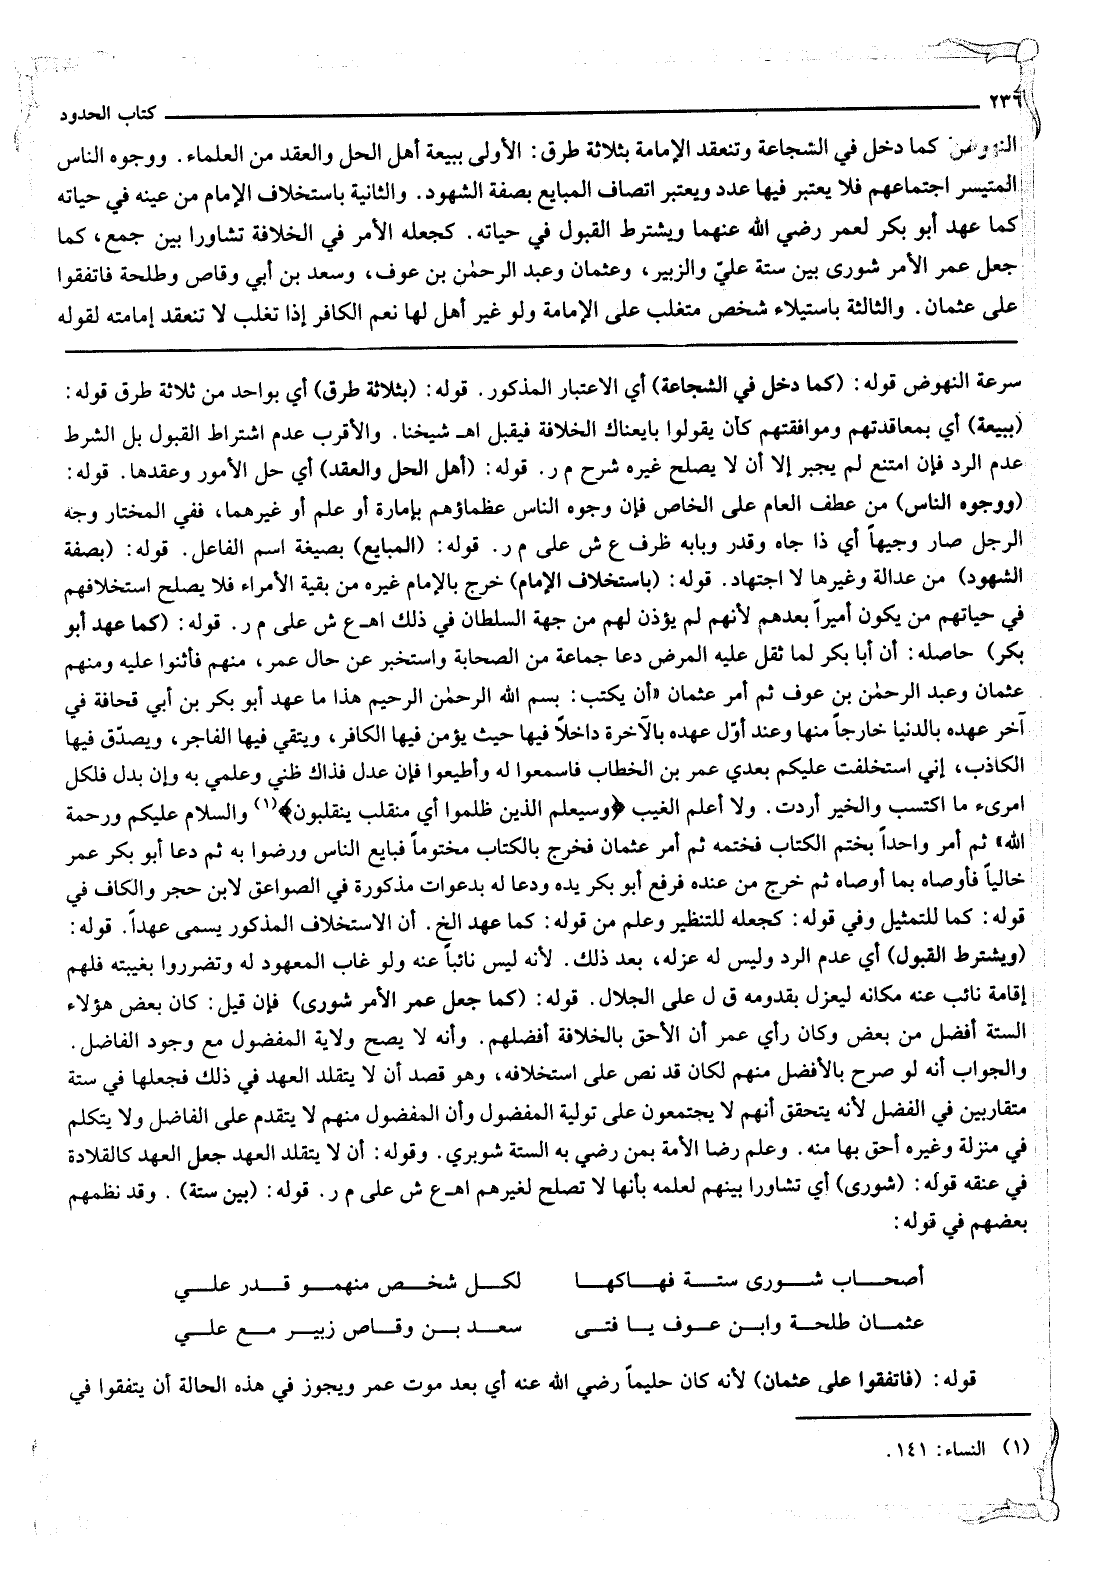 ٢٣٦ كتاب الحدود
النهوض كما دخل في الشجاعة وتنعقد الإمامة بثلاثة طرق: الأولى ببيعة أهل الحل والعقد من العلماء. ووجوه الناس
المتيسر اجتماعهم فلا يعتبر فيها عدد ويعتبر اتصاف المبايع بصفة الشهود. والثانية باستخلاف الإمام من عينه في حياته
كما عهد أبو بكر لعمر رضي الله عنهما ويشترط القبول في حياته. كجعله الأمر في الخلافة تشاورا بين جمع، كما
جعل عمر الأمر شورى بين ستة عليّ والزبير، وعثمان وعبد الرحمٰن بن عوف، وسعد بن أبي وقاص وطلحة فاتفقوا
على عثمان. والثالثة باستيلاء شخص متغلب على الإمامة ولو غير أهل لها نعم الكافر إذا تغلب لا تنعقد إمامته لقوله
سرعة النهوض قوله: (كما دخل في الشجاعة) أي الاعتبار المذكور. قوله: (بثلاثة طرق) أي بواحد من ثلاثة طرق قوله:
(ببيعة) أي بمعاقدتهم وموافقتهم كأن يقولوا بايعناك الخلافة فيقبل اهـ شيخنا. والأقرب عدم اشتراط القبول بل الشرط
عدم الرد فإن امتنع لم يجبر إلا أن لا يصلح غيره شرح م ر. قوله: (أهل الحل والعقد) أي حل الأمور وعقدها. قوله:
(ووجوه الناس) من عطف العام على الخاص فإن وجوه الناس عظماؤهم بإمارة أو علم أو غيرهما، ففي المختار وجه
الرجل صار وجيهاً أي ذا جاه وقدر وبابه ظرف ع ش على م ر. قوله: (المبايع) بصيغة اسم الفاعل. قوله: (بصفة
الشهود) من عدالة وغيرها لا اجتهاد. قوله: (باستخلاف الإمام) خرج بالإمام غيره من بقية الأمراء فلا يصلح استخلافهم
في حياتهم من يكون أميراً بعدهم لأنهم لم يؤذن لهم من جهة السلطان في ذلك اهـ ع ش على م ر. قوله: (كما عهد أبو
بكر) حاصله: أن أبا بكر لما ثقل عليه المرض دعا جماعة من الصحابة واستخبر عن حال عمر، منهم فأثنوا عليه ومنهم
عثمان وعبد الرحمٰن بن عوف ثم أمر عثمان «أن يكتب: بسم الله الرحمٰن الرحيم هذا ما عهد أبو بكر بن أبي قحافة في
آخر عهده بالدنيا خارجاً منها وعند أوّل عهده بالآخرة داخلاً فيها حيث يؤمن فيها الكافر، ويتقي فيها الفاجر، ويصدّق فيها
الكاذب، إني استخلفت عليكم بعدي عمر بن الخطاب فاسمعوا له وأطيعوا فإن عدل فذاك ظني وعلمي به وإن بدل فلكل
امرىء ما اكتسب والخير أردت. ولا أعلم الغيب ﴿وسيعلم الذين ظلموا أي منقلب ينقلبون﴾(١) والسلام عليكم ورحمة
الله» ثم أمر واحداً بختم الكتاب فختمه ثم أمر عثمان فخرج بالكتاب مختوماً فبايع الناس ورضوا به ثم دعا أبو بكر عمر
خالياً فأوصاه بما أوصاه ثم خرج من عنده فرفع أبو بكر يده ودعا له بدعوات مذكورة في الصواعق لابن حجر والكاف في
قوله: كما للتمثيل وفي قوله: كجعله للتنظير وعلم من قوله: كما عهد الخ. أن الاستخلاف المذكور يسمى عهداً. قوله:
(ويشترط القبول) أي عدم الرد وليس له عزله، بعد ذلك. لأنه ليس نائباً عنه ولو غاب المعهود له وتضرروا بغيبته فلهم
إقامة نائب عنه مكانه ليعزل بقدومه ق ل على الجلال. قوله: (كما جعل عمر الأمر شورى) فإن قيل: كان بعض هؤلاء
الستة أفضل من بعض وكان رأي عمر أن الأحق بالخلافة أفضلهم. وأنه لا يصح ولاية المفضول مع وجود الفاضل.
والجواب أنه لو صرح بالأفضل منهم لكان قد نص على استخلافه، وهو قصد أن لا يتقلد العهد في ذلك فجعلها في ستة
متقاربين في الفضل لأنه يتحقق أنهم لا يجتمعون على تولية المفضول وأن المفضول منهم لا يتقدم على الفاضل ولا يتكلم
في منزلة وغيره أحق بها منه. وعلم رضا الأمة بمن رضي به الستة شوبري. وقوله: أن لا يتقلد العهد جعل العهد كالقلادة
في عنقه قوله: (شورى) أي تشاورا بينهم لعلمه بأنها لا تصلح لغيرهم اهـ ع ش على م ر. قوله: (بين ستة). وقد نظمهم
بعضهم في قوله:
أصحاب شورى ستة فهاكها لكل شخص منهمو قدر علي
عثمان طلحة وابن عوف يا فتى سعد بن وقاص زبير مع علي
قوله: (فاتفقوا على عثمان) لأنه كان حليماً رضي الله عنه أي بعد موت عمر ويجوز في هذه الحالة أن يتفقوا في
(١) النساء: ١٤١.